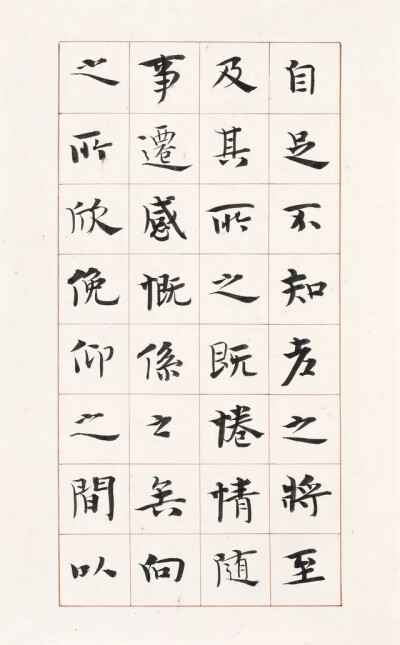 自足不知老之將至
及其所之既惓情随
事遷感慨係之矣向
之所欣俛仰之間以